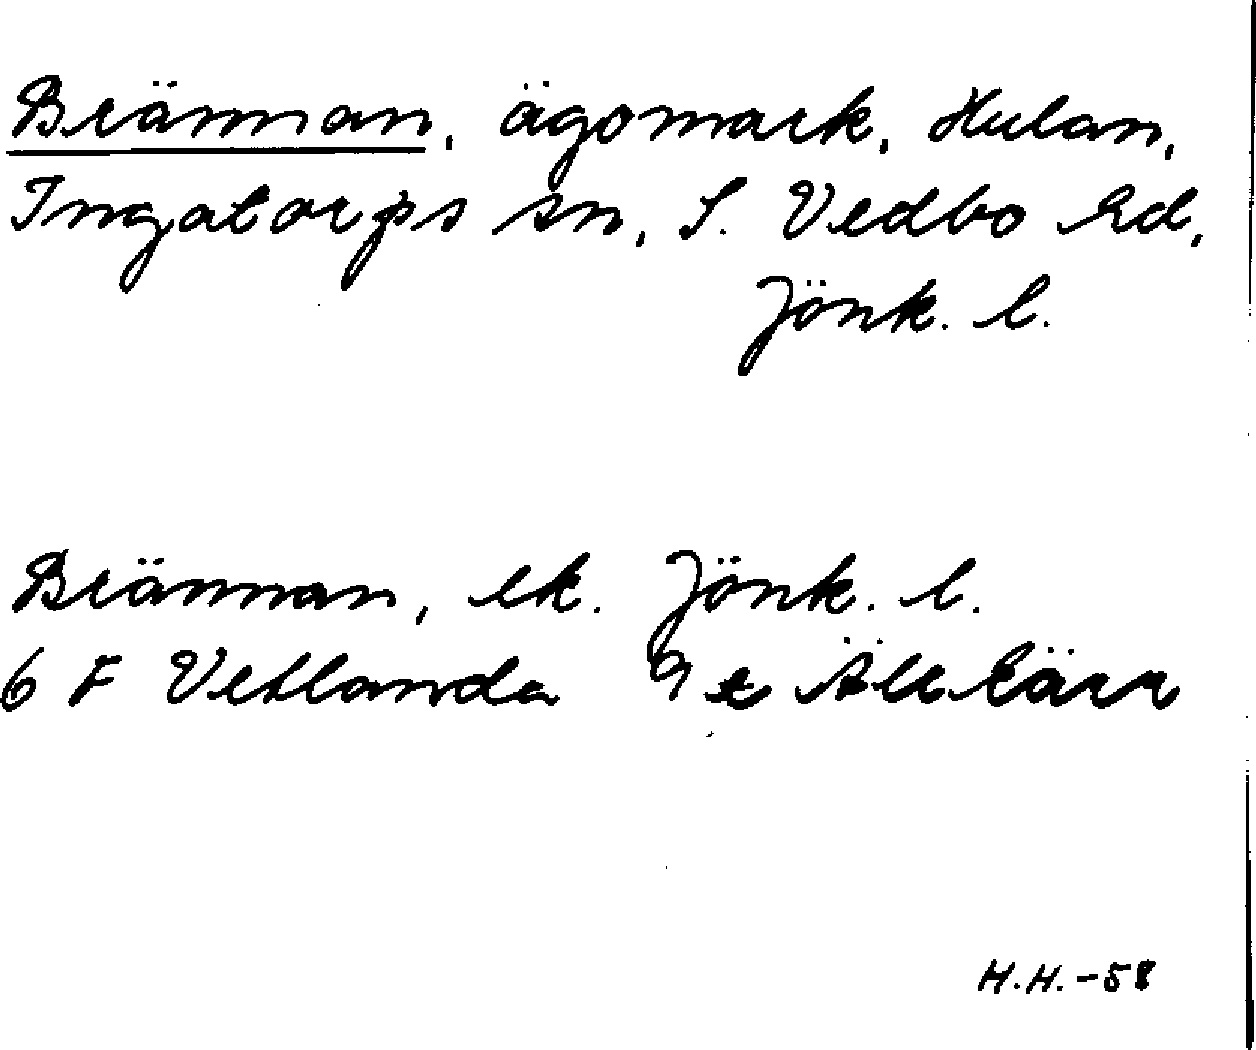 Brännan, ägomark, Hulan,
Ingatorps sn, S. Vedbo hd,
Jönk. l.
Brännan, ek. Jönk. l.
6 F Vetlanda 9 e Älekärr
H.H. -58